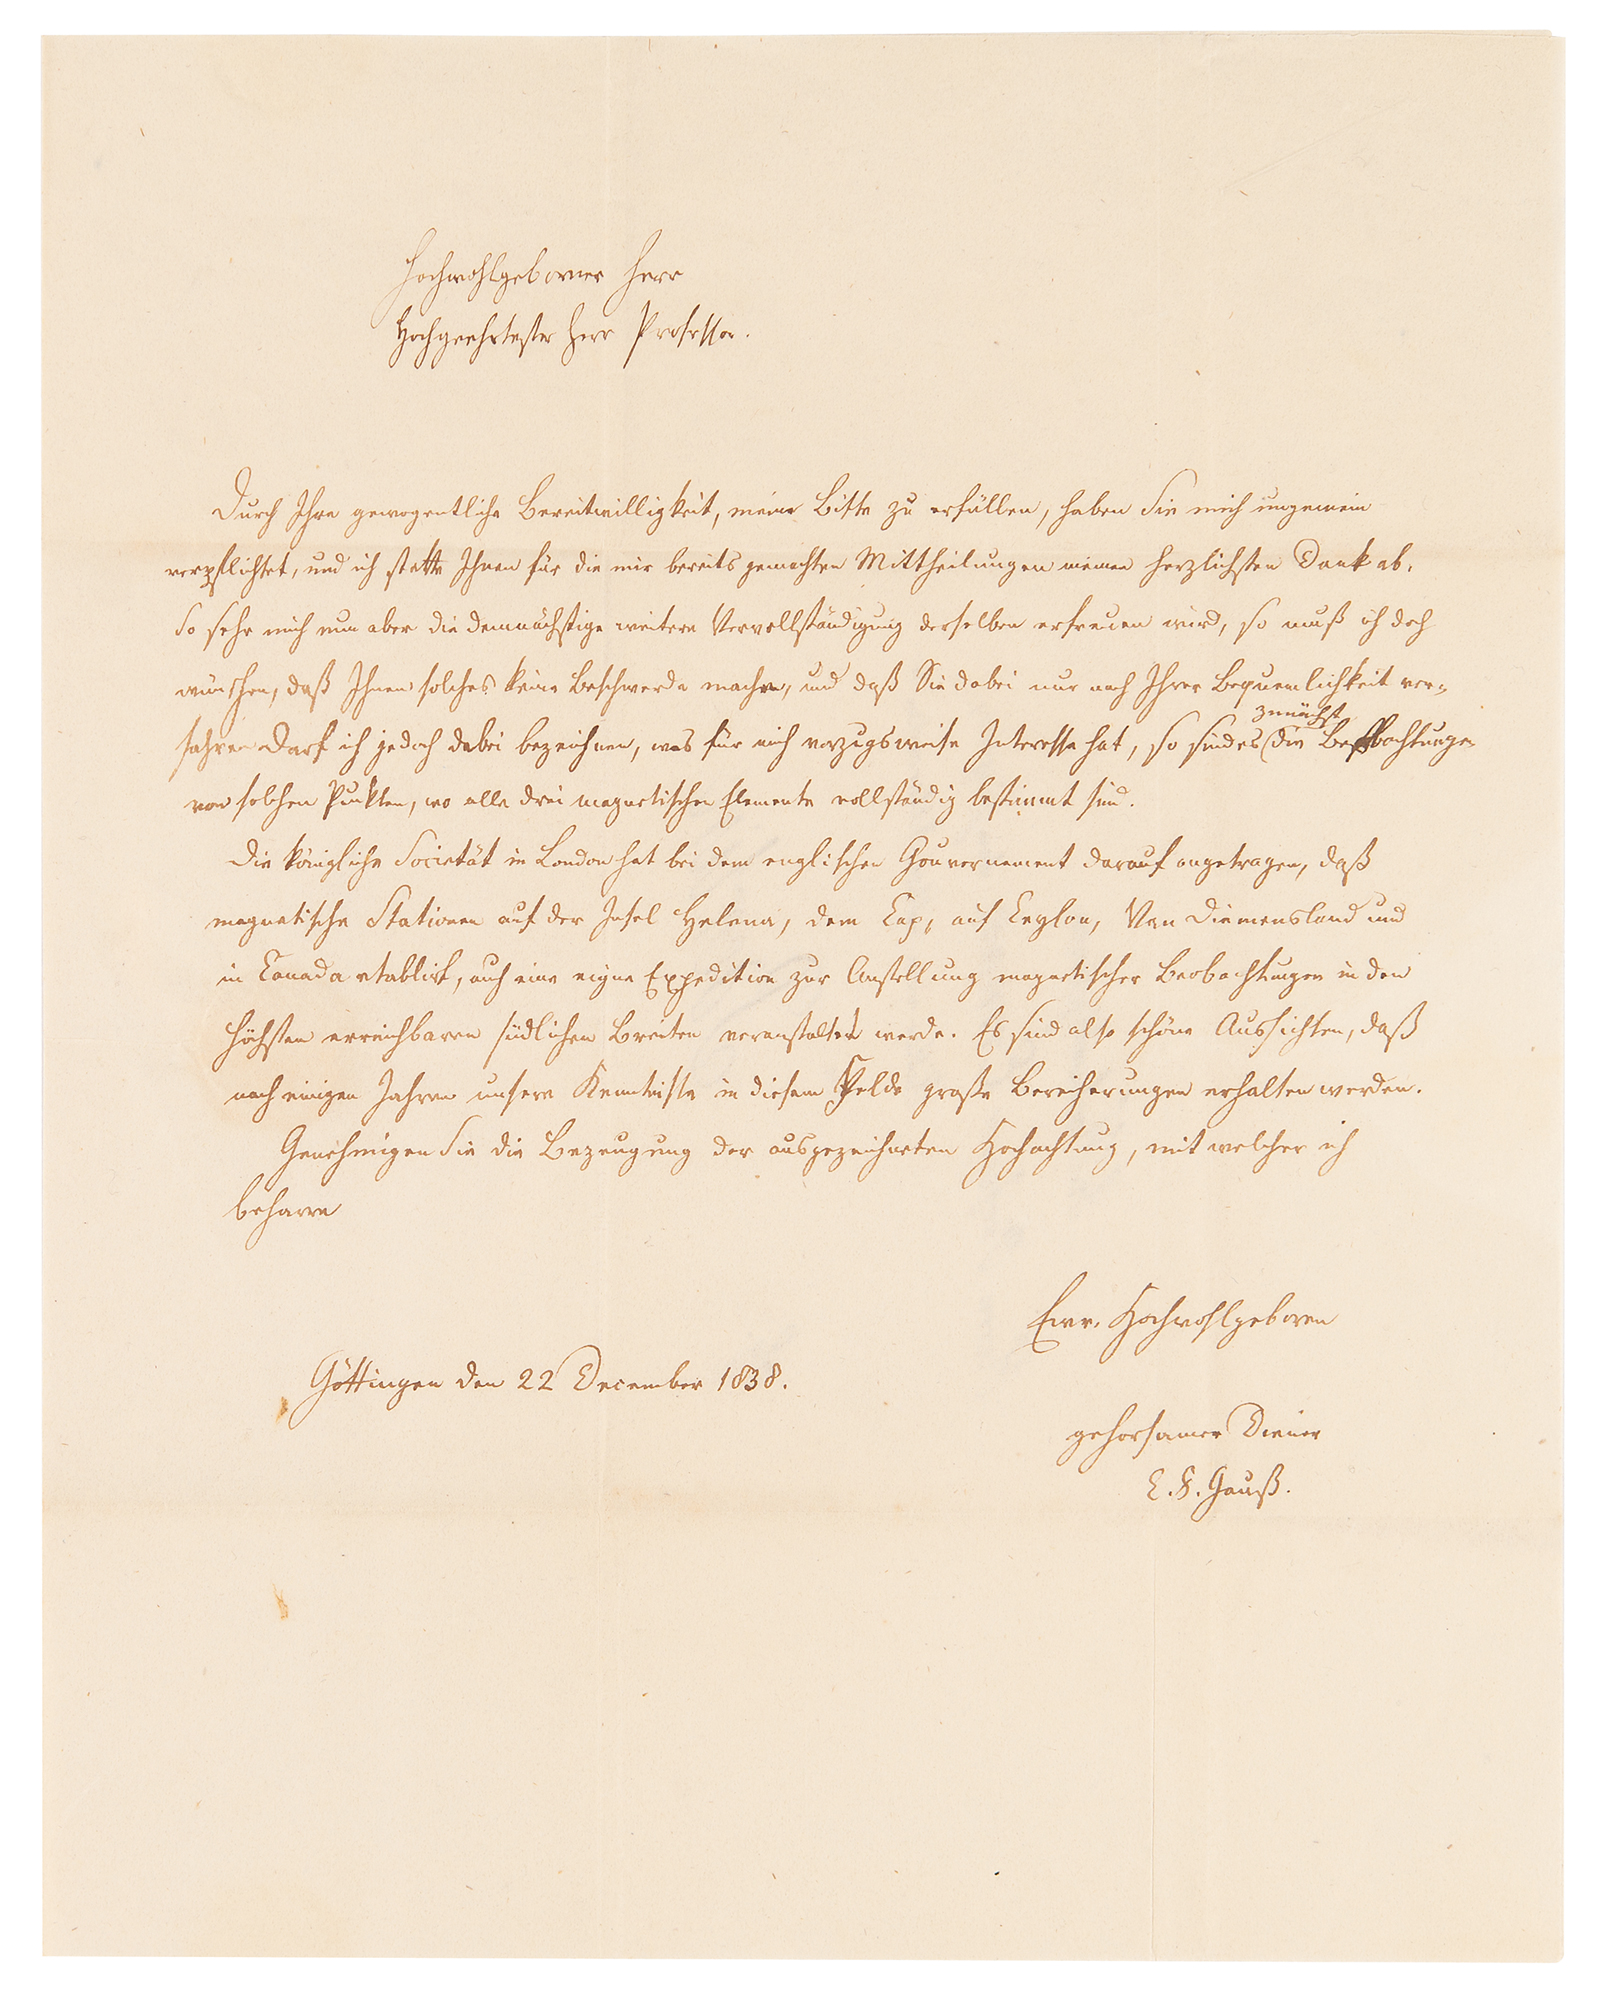 Hochwohlgeborner Herr
Hochgeehrtester Herr Professor.
Durch Ihre gewogentliche Bereitwilligkeit, meine Bitte zu erfüllen, haben Sie mich ungemein
verpflichtet, und ich statte Ihnen für die mir bereits gemachten Mittheilungen meinen herzlichsten Dank ab.
So sehr mich nun aber die demnächstige weitere Vervollständigung derselben erfreuen wird, so muß ich doch
wünschen, daß Ihnen solches keine Beschwerde mache, und daß Sie dabei nur nach Ihrer Bequemlichkeit ver-
fahren Darf ich jedoch dabei bezeichnen, was für mich vorzugsweise Interesse hat, so sind es zunächst die Beobachtungen
von solchen Punkten, wo alle drei magnetischen Elemente vollständig bestimmt sind.
Die königliche Societät in London hat bei dem englischen Gouvernement darauf angetragen, daß
magnetische Stationen auf der Insel Helena, dem Cap, auf Ceylon, Van Diemensland und
in Canada etablirt, auch eine eigne Expedition zur Anstellung magnetischer Beobachtungen in den
höchsten erreichbaren südlichen Breiten veranstaltet werde. Es sind also schöne Aussichten, daß
nach einigen Jahren unsere Kenntnisse in diesem Felde große Bereicherungen erhalten werden.
Genehmigen Sie die Bezeugung der ausgezeichneten Hochachtung, mit welcher ich
beharre
Ewr. Hochwohlgeboren
Göttingen den 22 December 1838.
gehorsamer Diener
C. F. Gauß.